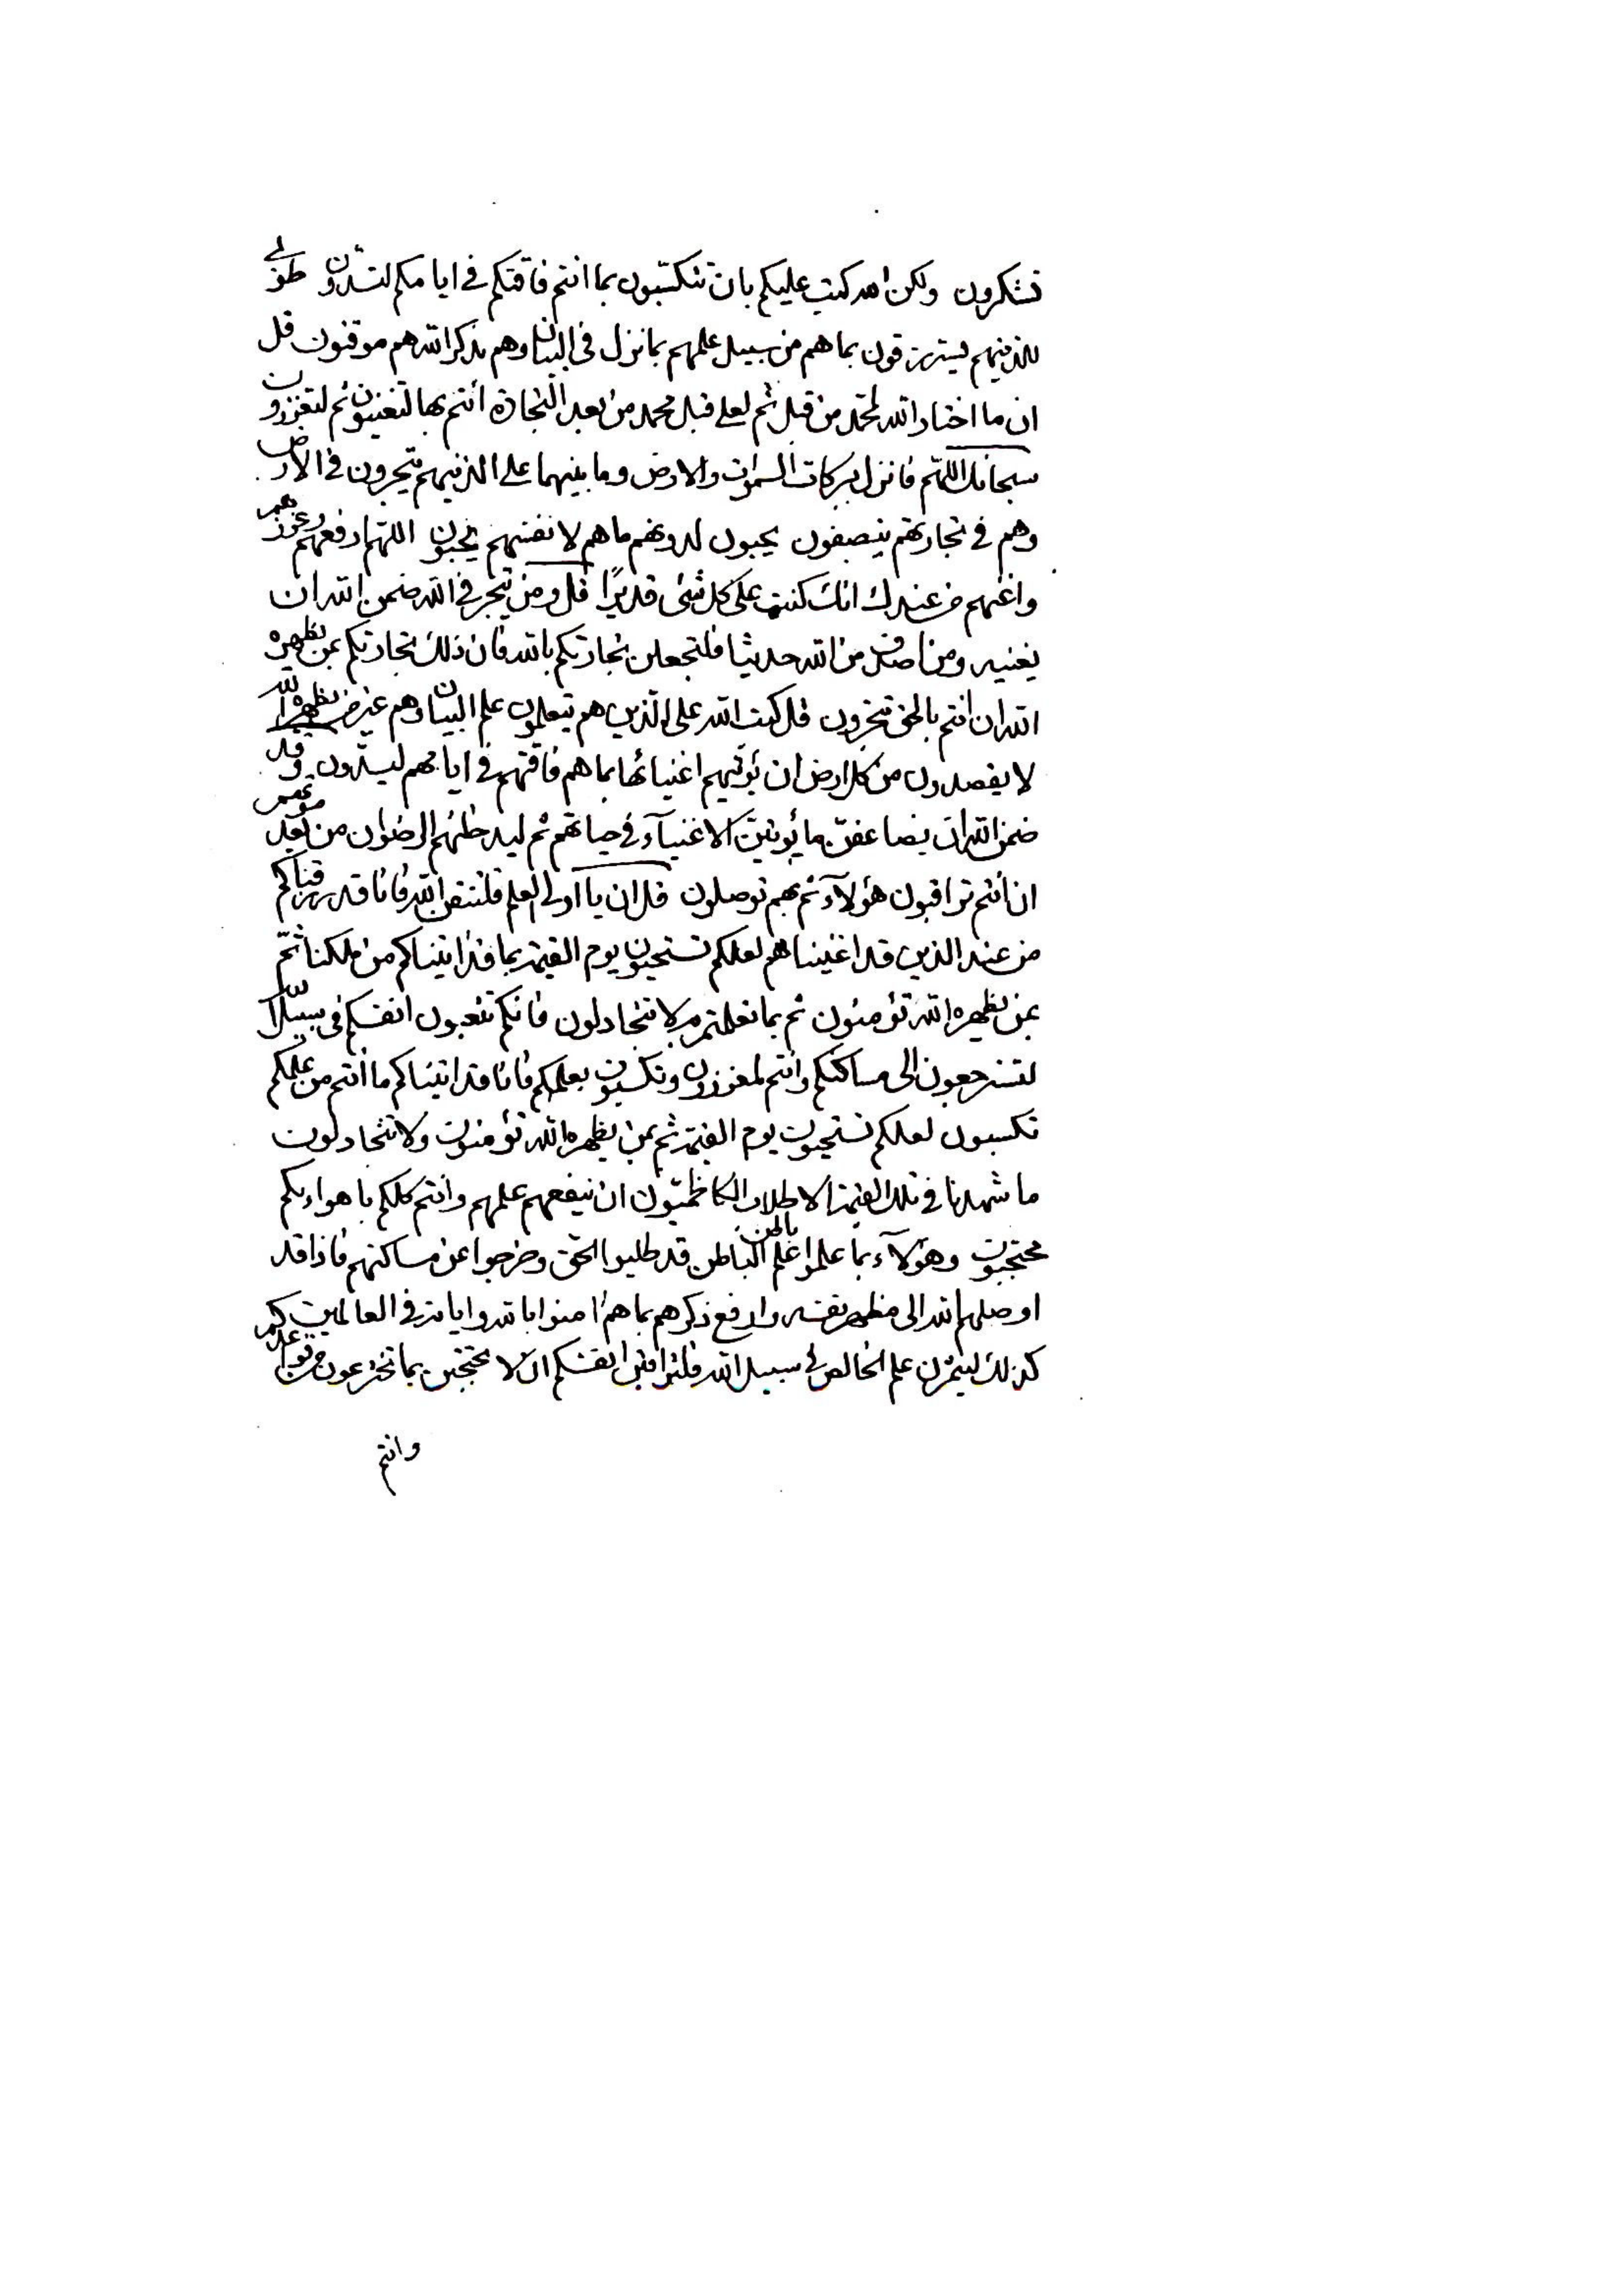 تشكرون ولكن الله كتب عليكم بان تتكسّبون بما انتم فاقتكم في ايامكم لتسدّون طوبى
للذينهم يسترزقون بما هم من سبيل علمهم بما نزل في البيان وهم بذكر الله هم موقنون قل
ان ما اختار الله لمحمد من قبل ثم لعلي قبل محمد من بعد التجارة انتم بها لتغنيون ثم لتعززون
سبحانك اللهم فانزل بركات السموات والارض وما بينهما على الذينهم يتجرون في الارض
وهم في تجارتهم ينصفون يحبون لدونهم ما هم لانفسهم يحبون اللهم ارفعهم وعززهم
واغنهم من عندك انك كنت على كل شيء قديرًا قل ومن يتجر في الله ضمن الله ان
يغنيه ومن اصدق من الله حديثا فلتجعلن تجارتكم بالله فان ذلك تجارتكم بمن يظهره
الله ان انتم بالحق تتجرون قل كتب الله على الذين هم يتعلمون علم البيان وهم غير من يظهره الله
لا يقصدون من كل ارض ان يؤتيهم اغنيائها بما هم فاقتهم في ايامهم ليسدّون وقد
ضمن الله ان يضاعفنّ ما يؤتينّ الاغنياء في حياتهم ثم ليدخلنهم الرضوان من بعد موتهم
ان انتم تراقبون هؤلآء ثم بهم توصلون قل ان يا اولي العلم فلتتقن الله فانا قد رزقناكم
من عند الذين قد اغنيناهم لعلكم تستحيون يوم القيمة بما قد اتيناكم من ملكنا ثمّ
بمن يظهره الله تؤمنون ثم بما تعلمتم به لا تتجادلون فانكم تتعبون انفسكم في سبيل الله
لتسترجعون الى مساكنكم وانتم لمعززون وتكسبون بعلمكم فانا قد اتيناكم ما انتم من علمكم
تكسبون لعلكم تستحيون يوم القيمة ثم بمن يظهره الله تؤمنون ولا تتجادلون
ما شهدنا في تلك القيمة الا طلاب الكاظميّون ان ينفعهم علمهم وانتم كلكم باهواءكم
محتجبون وهؤلآء بما علموا علم الباطن بالحق قد طلبوا الحق وخرجوا عن مساكنهم فاذا قد
اوصلهم الله الى مظهر نفسه وارفع ذكرهم بما هم امنوا بالله واياته في العالمين
كذلك ليثمرن علم الخالص في سبيل الله فلتراقبن انفسكم ان لا تحتجبن بما تخترعون من قواعد علمكم
وانتم